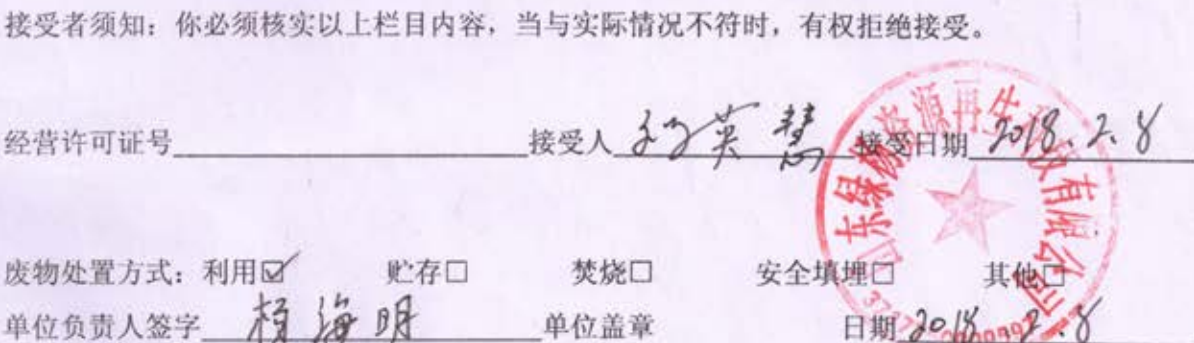 接受者须知：你必须核实以上栏目内容，当与实际情况不符时，有权拒绝接受。
经营许可证号 接受人 英慧 接受日期 2018.2.8
废物处置方式：利用☑ 贮存□ 焚烧□ 安全填埋□ 其他□
单位负责人签字 杨海明 单位盖章 日期 2018.2.8
东绿 资源再生 有限公司